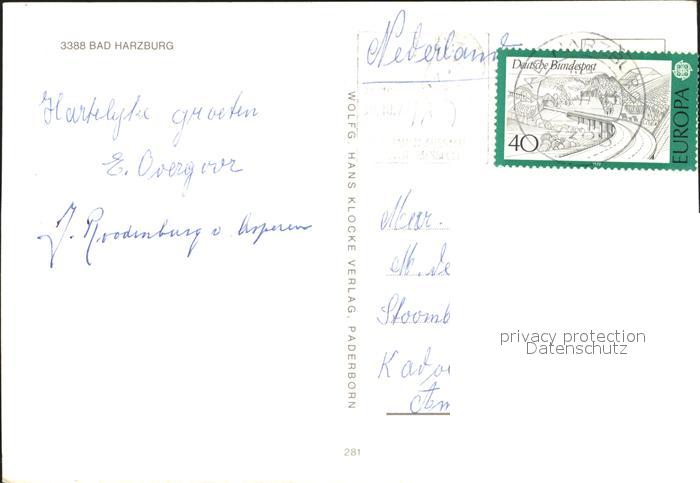 3388 BAD HARZBURG
Nederland
Deutsche Bundespost
40
EUROPA
Hartelijke groeten
E. Overgoor
J. Roodenburg v. Asperen
WOLFG. HANS KLOCKE VERLAG, PADERBORN
M. de
Stoomb
privacy protection
Datenschutz
281